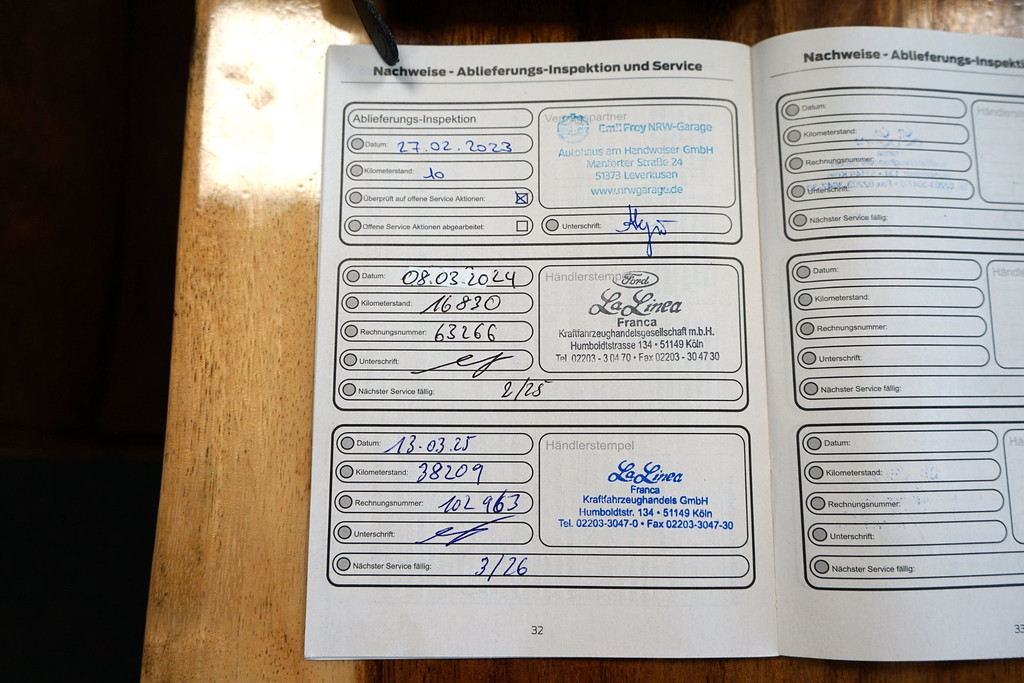 Nachweise - Ablieferungs-Inspektion und Service
Ablieferungs-Inspektion
Datum: 27.02.2023
Kilometerstand: 10
Überprüft auf offene Service Aktionen:
Offene Service Aktionen abgearbeitet:
Emil Frey NRW-Garage
Autohaus am Handweiser GmbH
Manforter Straße 24
51373 Leverkusen
www.nrwgarage.de
Unterschrift:
Datum: 08.03.2024
Kilometerstand: 16830
Rechnungsnummer: 63266
Unterschrift:
Nächster Service fällig: 2/25
Händlerstempel
Ford
La Linea
Franca
Kraftfahrzeughandelsgesellschaft m.b.H.
Humboldtstrasse 134 • 51149 Köln
Tel. 02203 - 3 04 70 • Fax 02203 - 30 47 30
Datum: 13.03.25
Kilometerstand: 38209
Rechnungsnummer: 102963
Unterschrift:
Nächster Service fällig: 3/26
Händlerstempel
La Linea
Franca
Kraftfahrzeughandels GmbH
Humboldtstr. 134 • 51149 Köln
Tel. 02203-3047-0 • Fax 02203-3047-30
32
Nachweise - Ablieferungs-Inspekti
Datum:
Kilometerstand:
Rechnungsnummer:
Unterschrift:
Nächster Service fällig:
Händlers
Datum:
Kilometerstand:
Rechnungsnummer:
Unterschrift:
Nächster Service fällig:
Händle
Datum:
Kilometerstand:
Rechnungsnummer:
Unterschrift:
Nächster Service fällig:
Hä
33